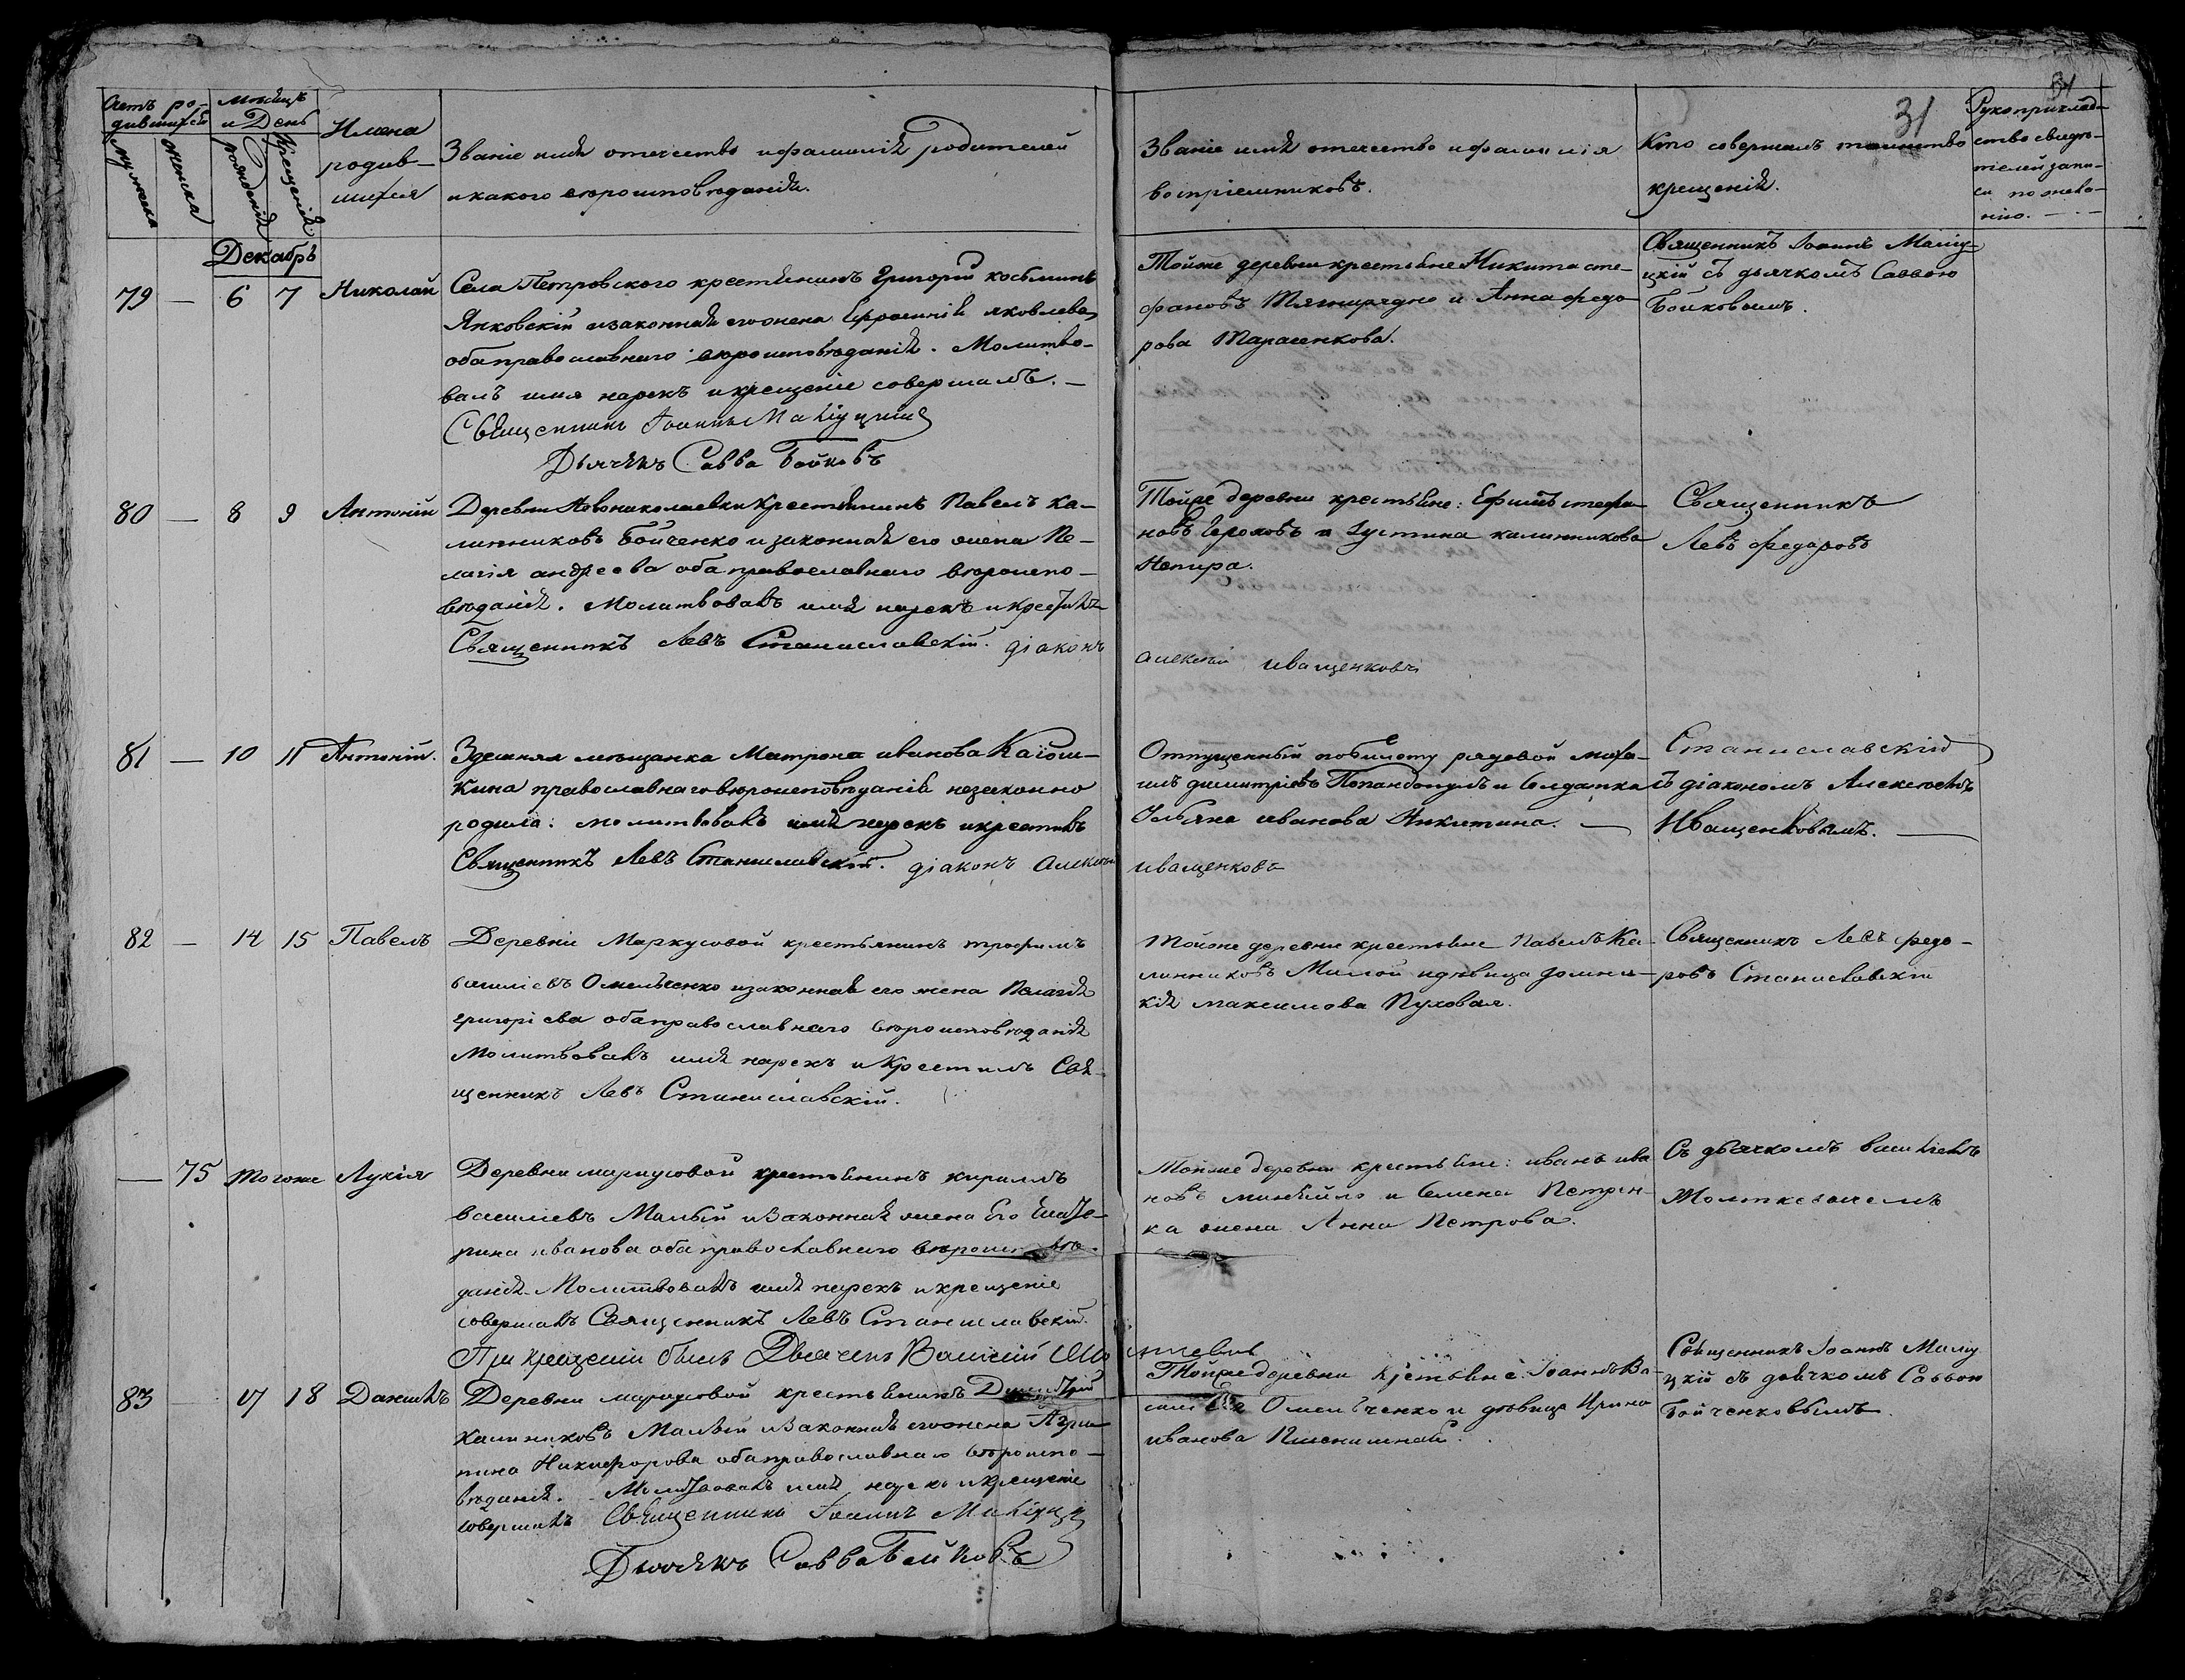 31
31
Счетъ ро-
дившихся
мужеска
женска
Мѣсяцъ
и День
рожденія
Крещенія
Имена
родив-
шихся
Званіе имя отечество и фамилія родителей
и какого вѣроисповѣданія.
Званіе имя отечество и фамилія
воспріемниковъ.
Кто совершалъ таинство
крещенія.
Рукоприклад-
ство свидѣ-
телей запи-
си по жела-
нію.
Декабрь
79 — 6 7 Николай
Села Петровского крестьянинъ Григорій косьминъ
Янковскій и законная его жена яковлева
оба православнаго вѣроисповѣданія. Молитво-
валъ имя нарекъ и крещеніе совершалъ. —
Священникъ Іоаннъ
Дьячекъ Савва Бойковъ
Тойже деревни крестьяне Никита сте-
фановъ и Анна федо-
рова Тарасенкова.
Священникъ Іоаннъ Малиу-
цкій съ дьячкомъ Саввою
Бойковымъ.
80 — 8 9 Антоній
Деревни Новониколаевки крестьянинъ Павелъ ка-
линниковъ Бойченко и законная его жена Пе-
лагія андреева оба православнаго вѣроиспо-
вѣданія. Молитвовалъ имя нарекъ и крестилъ
Священникъ Левъ Станиславскій. діаконъ
Тойже деревни крестьяне: Ефимъ стефа-
новъ и Іустина калинникова
Непира.
алексій иващенковъ
Священникъ
Левъ федоровъ
81 — 10 11 Антоній.
Здешняя мѣщанка Матрона иванова
кина православнаго вѣроисповѣданія незаконно
родила: молитвовалъ имя нарекъ и крестилъ
Священникъ Левъ Станиславскій. діаконъ алексій
Отпущенный по билету рядовой миха-
илъ димитріевъ Попандопулъ и солдатка
Ульяна иванова Никитина. —
иващенковъ
Станиславскій
съ діакономъ Алексіемъ
Иващенковымъ. —
82 — 14 15 Павелъ
Деревни Маркусовой крестьянинъ трофимъ
василіевъ Омельченко и законная его жена Пелагія
григоріева оба православнаго вѣроисповѣданія
Молитвовалъ имя нарекъ и крестилъ Свя-
щенникъ Левъ Станиславскій.
Тойже деревни крестьяне Павелъ Ка-
линниковъ Малой и дѣвица домни-
кія максимова Пуховая.
Священникъ Левъ федо-
ровъ Станиславскій
— 75 тогоже Лукія
Деревни маркусовой крестьянинъ кирилъ
василіевъ Малый и законная жена Его Екате-
рина иванова оба православнаго вѣроисповѣ-
данія. Молитвовалъ имя нарекъ и крещеніе
совершалъ Священникъ Левъ Станиславскій.
При крещеніи былъ Дьячекъ Василій
Тойже деревни крестьяне: иванъ ива
новъ и Семена Петрен-
ка жена Анна Петрова.
Съ дьячкомъ василіемъ
83 — 17 18 Даніилъ
Деревни маркусовой крестьянинъ Димитрій
калиниковъ Малый и законная его жена Агри-
пина Никифорова оба православнаго вѣроиспо-
вѣданія. Молитвовалъ имя нарекъ и крещеніе
совершалъ Священникъ Іоаннъ
Дьячекъ Савва Бойковъ
Тойже деревни крестьяне: Іоаннъ Ва-
силіевъ Омельченко и дѣвица Ирина
иванова Пшенишная.
Священникъ Іоаннъ Малиу
цкій съ дьячкомъ Саввою
Бойченковымъ